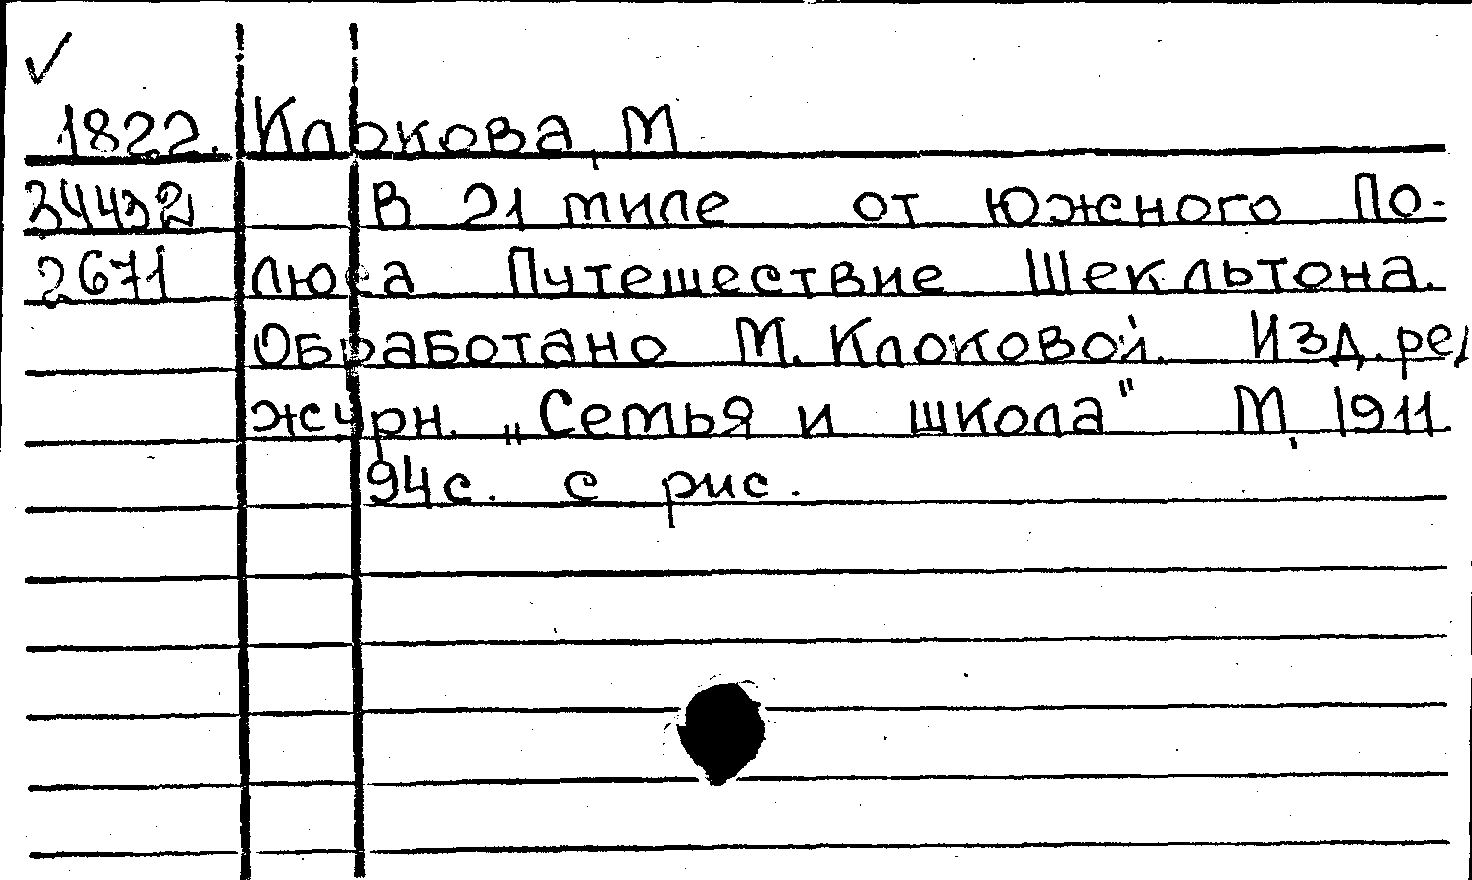 ✓
1822. Клокова, М
34432 В 21 миле от Южного По-
2671 люса Путешествие Шекльтона.
Обработано М. Клоковой. Изд. ред
журн. „Семья и школа" М, 1911.
94с. с рис.